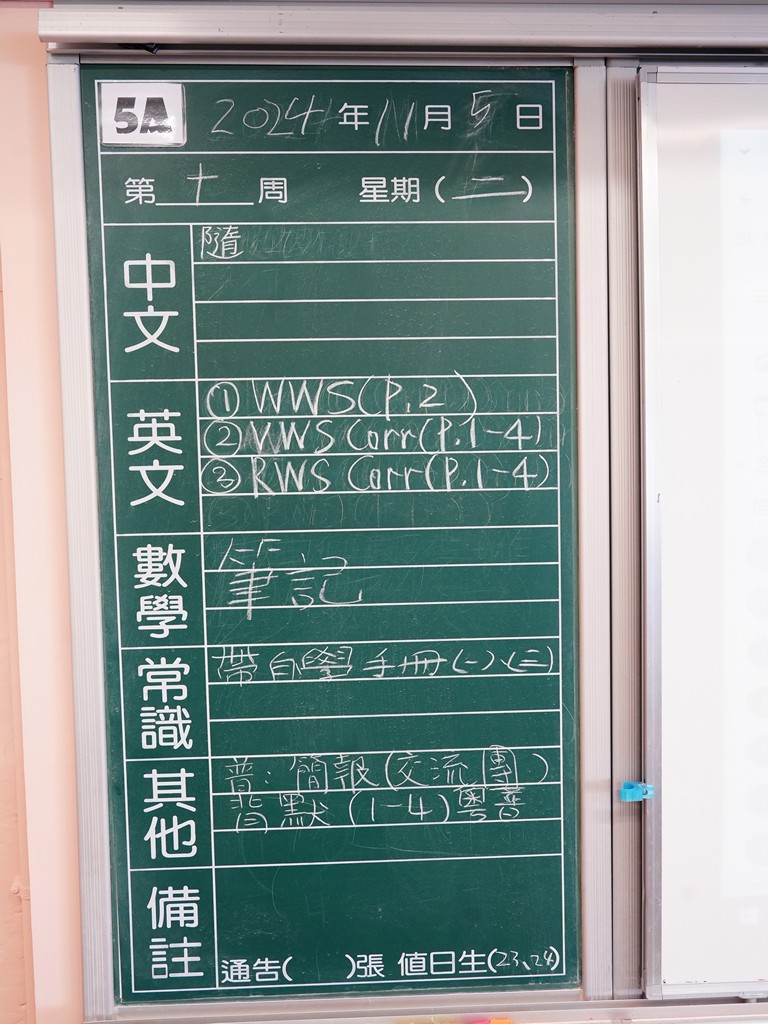 5A 2024年11月5日
第十周 星期(二)
中文 隨
英文 ① WWS(P.2)
② VWS Corr(P.1-4)
③ RWS Corr(P.1-4)
數學 筆記
常識 帶自學手冊(一)、(三)
其他 普:簡報(交流團)
背默(1-4)粵普
備註
通告( )張 值日生(23、24)